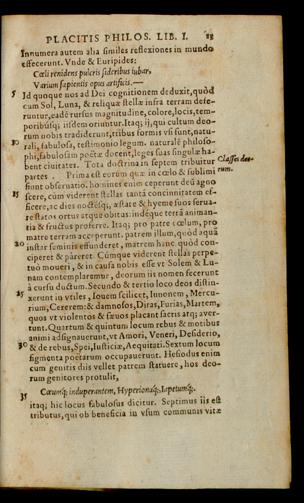 PLACITIS PHILOS. LIB. I.
Innumera autem alia similes reflexiones in mundo
effecerunt. Vnde & Euripides;
Cœli renidens pulcris sideribus iubar,
Varium sapientis opus artificis.—
5 Id quonque nos ad Dei cognitionem deduxit, quòd
cum Sol, Luna, & reliquæ stellæ infra terram defe-
runtur, eadē rursus magnitudine, colore, locis, tem-
poribusq́; iisdem oriuntur. Itaq; ij, qui cultum deo-
rum nobis tradiderunt, tribus formis vsi sunt, natu-
10 rali, fabulosa, testimonio legum. naturalē philoso-
phi, fabulosam poëtæ docent, leges suas singulæ ha-
bent ciuitates. Tota doctrina in septem tribuitur
Classes deo-
rum.
partes. Prima est eorum quæ in cœlo & sublimi
fiunt obseruatio. homines enim ceperunt deū agno
15 scere, cùm viderent stellas tantā concinnitatem ef-
ficere, ac dies noctesq́;, æstate & hyeme suos ferua-
re statos ortus atque obitus: indéque terrā animan-
tia & fructus proferre. Itaq; pro patre cœlum, pro
matre terram acceperunt. patrem illum, quòd aquā
20 instar seminis effunderet, matrem hanc quòd con-
ciperet & pareret. Cúmque viderent stellas perpe-
tuò moueri, & in causa nobis esse vt Solem & Lu-
nam contemplaremur, deorum iis nomen fecerunt
à cursu ductum. Secundo & tertio loco deos distin-
25 xerunt in vtiles, Iouem scilicet, Iunonem, Mercu-
rium, Cererem: & damnosos, Diras, Furias, Martem,
quos vt violentos & sæuos placant sacris atq; auer-
tunt. Quartum & quintum locum rebus & motibus
animi adsignauerunt, vt Amori, Veneri, Desiderio,
30 & de rebus, Spei, Iusticiæ, Aequitati. Sextum locum
figmenta poëtarum occupauerunt. Hesiodus enim
cum genitis diis vellet patrem statuere, hos deo-
rum genitores protulit,
Cœumq́; induperantem, Hyperionaq́;, Iapetumq́;.
35 itaq; hic locus fabulosus dicitur. Septimus iis est
tributus, qui ob beneficia in vsum communis vitæ